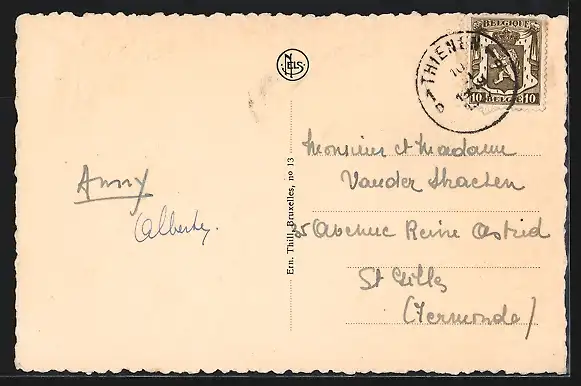 BELGIQUE
10 BELGIE 10
THIENEN
NELS
Monsieur et Madame
Vander Straeten
35 Avenue Reine Astrid
St Gilles
(Termonde)
Anny
Alberte.
Ern. Thill, Bruxelles, no 13